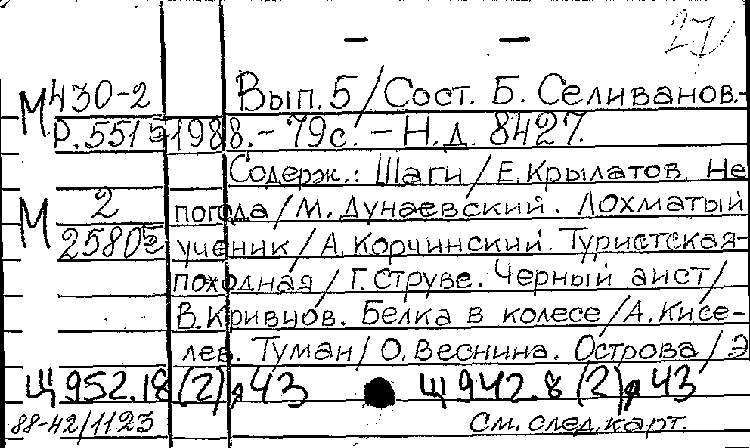 — — 27
М 430-2 Вып. 5 / Сост. Б. Селиванов.-
Р.5515 1988. – 79с. – Н.д. 8427.
Содерж.: Шаги / Е.Крылатов. Не
М 2 погода / М. Дунаевский. Лохматый
25805 ученик / А. Корчинский. Туристская-
походная / Г. Струве. Черный аист /
В. Кривцов. Белка в колесе / А. Кисе-
лев. Туман / О. Веснина. Острова / Э
Щ952.18(2)я43 Щ942.8(2)я43
88-42/1123 См. след. карт.